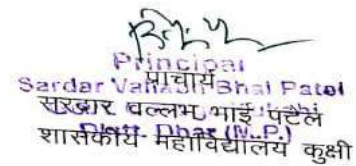 Principal
प्राचार्य
Sardar Vallabh Bhai Patel
सरदार वल्लभ भाई पटेल
Distt- Dhar (M.P.)
शासकीय महाविद्यालय कुक्षी